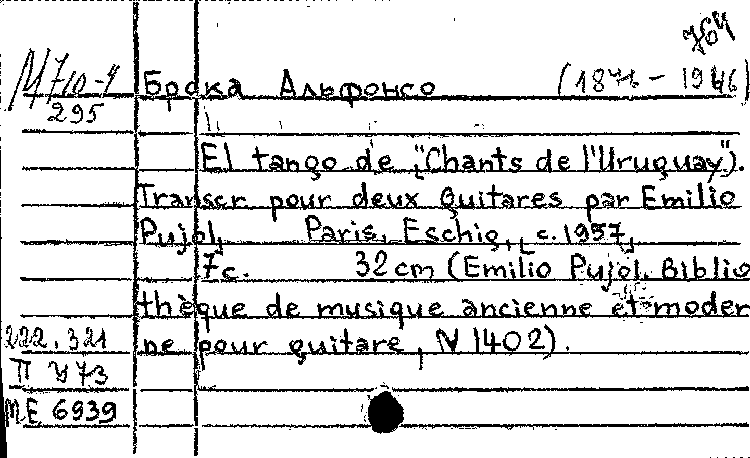 764
М710-4
295
Брока Альфонсо (1874 - 1946)
El tango de "Chants de l'Uruguay").
Transcr pour deux guitares par Emilio
Pujol, Paris, Eschig, [c. 1957]
7c. 32 cm (Emilio Pujol. Biblio
thèque de musique ancienne et moder
ne pour guitare, N 1402).
222.321
П 473
МЕ 6939